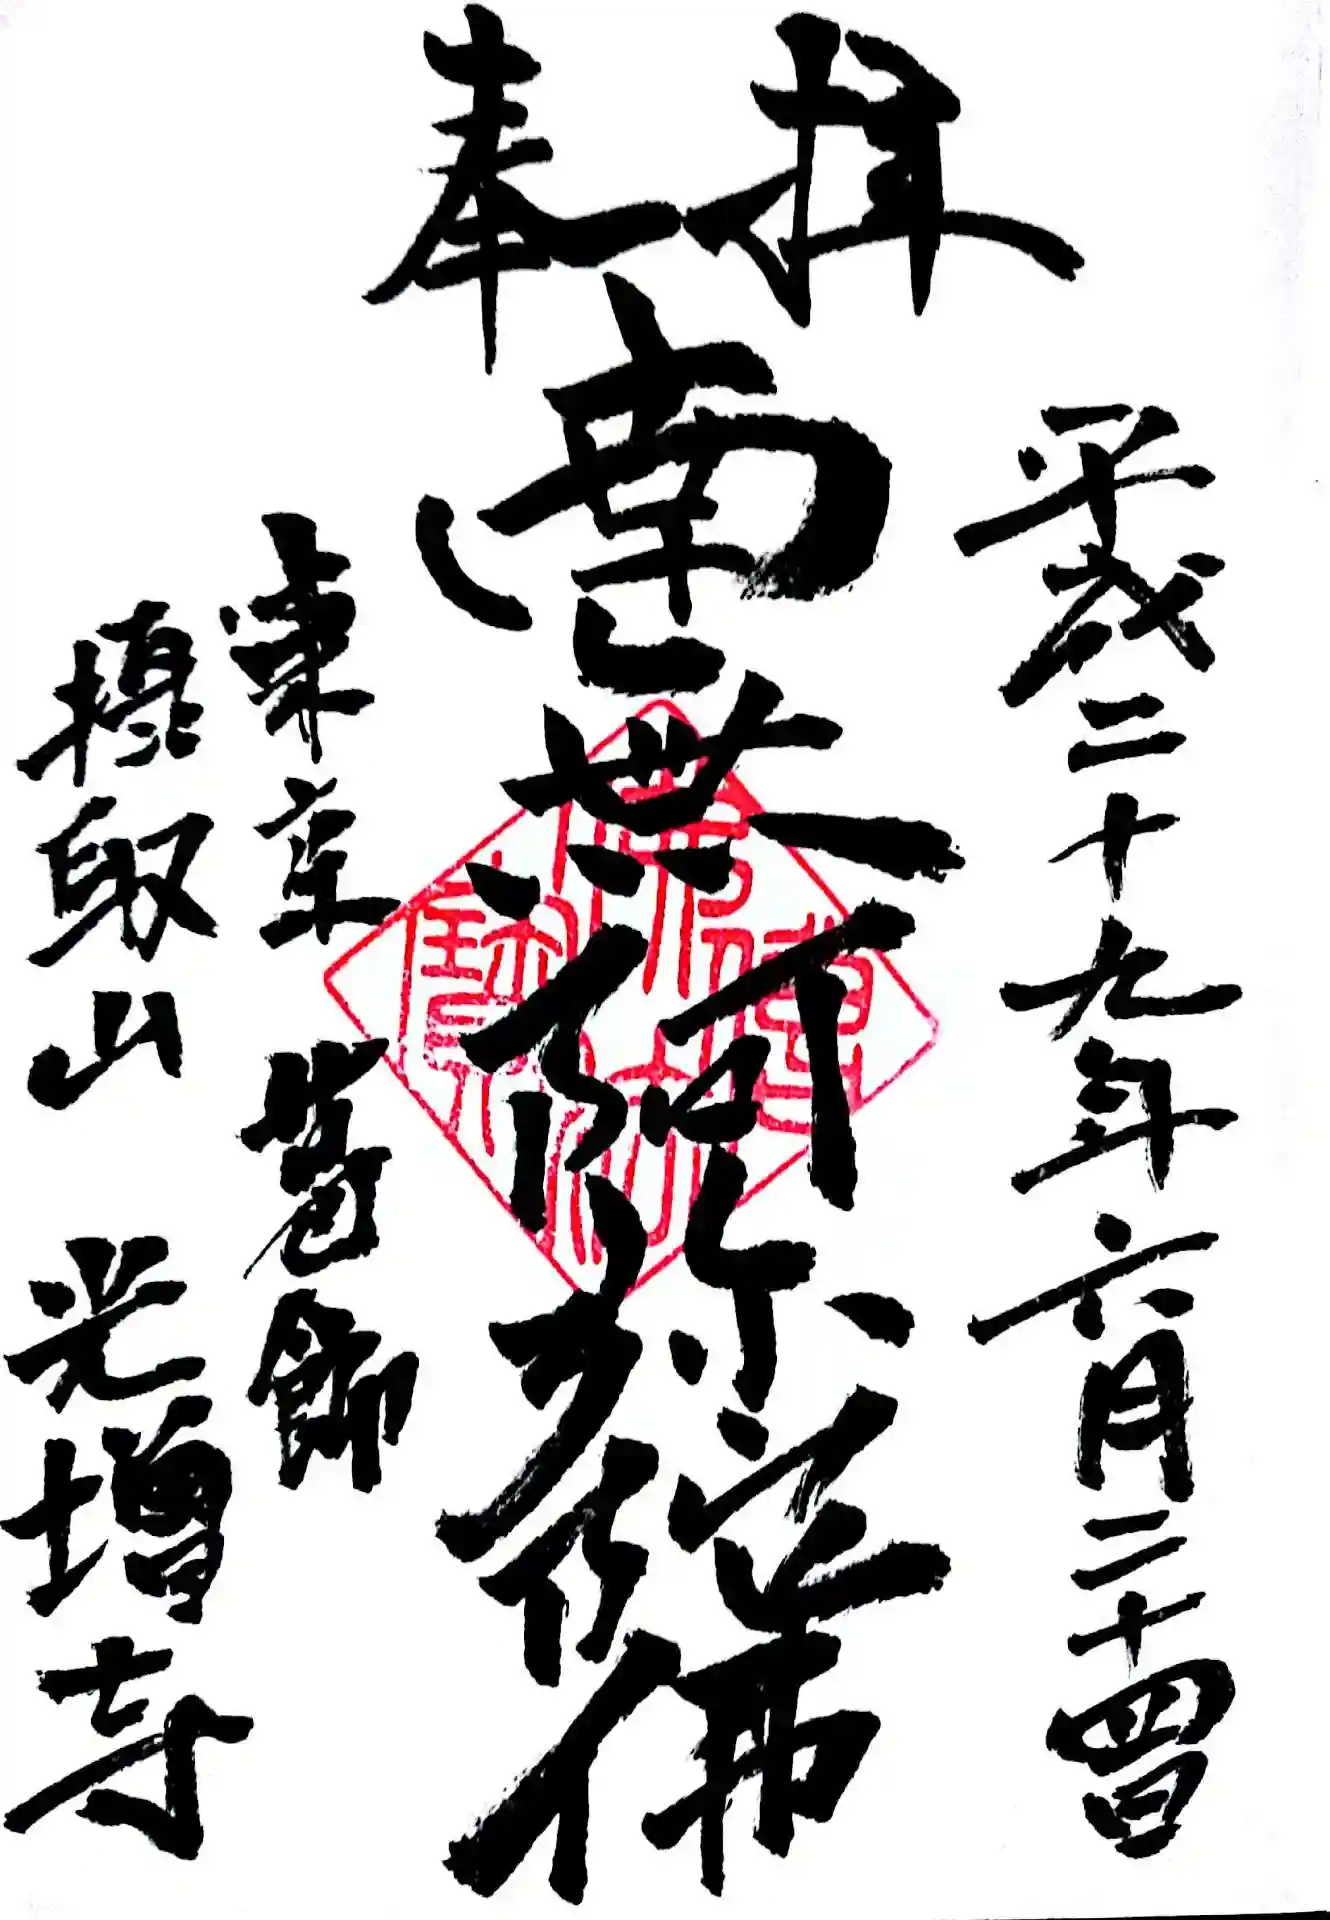 奉拝
平成二十九年六月二十四日
南無阿弥陀佛
佛法僧寶
東京 葛飾
摂取山 光増寺